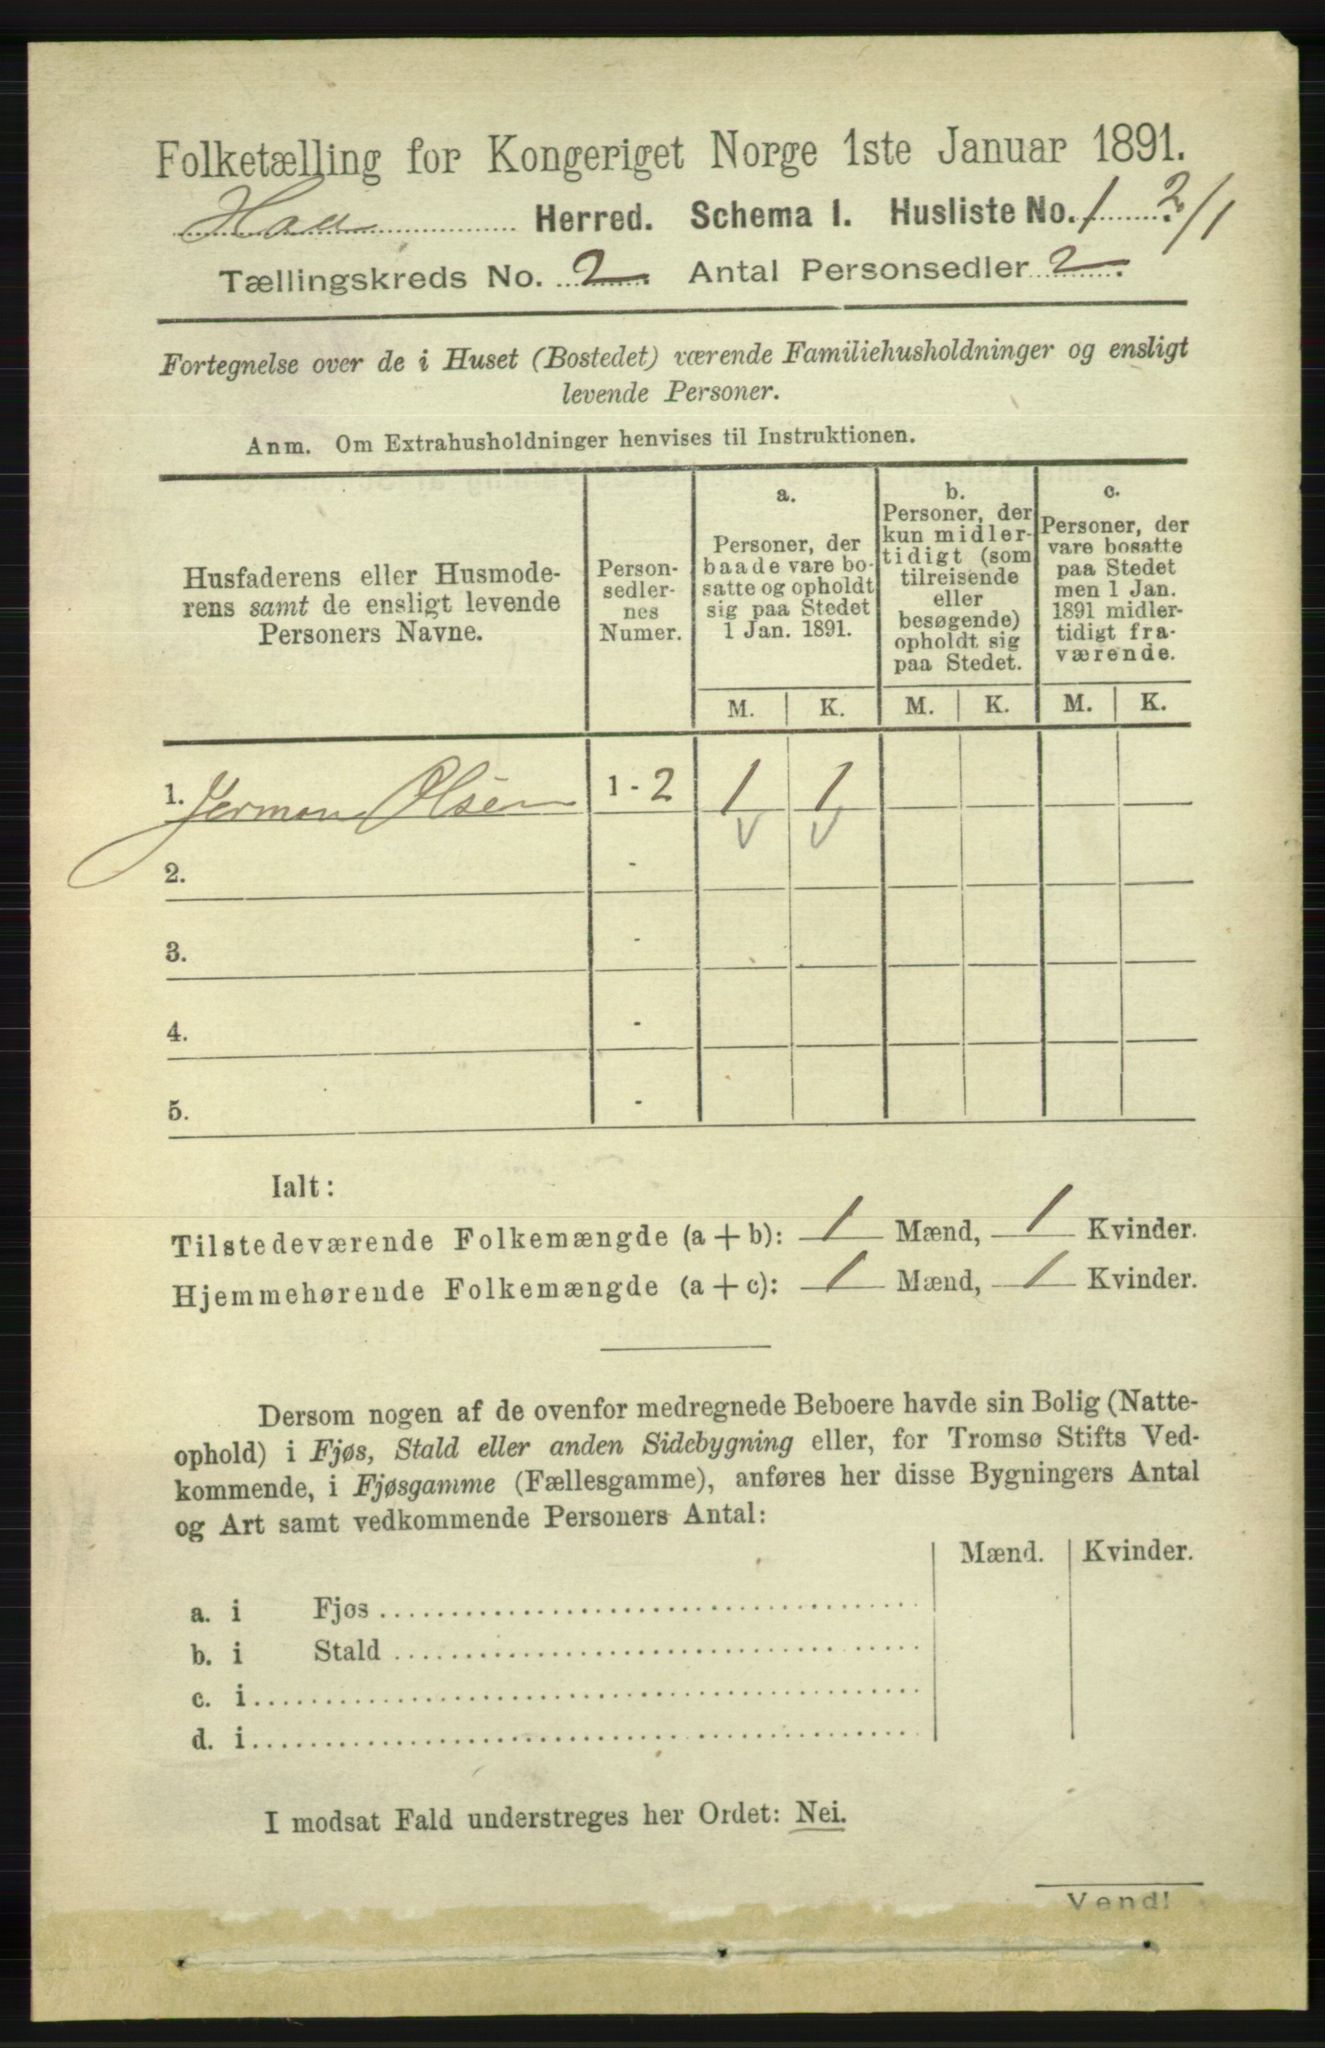 Folketælling for Kongeriget Norge 1ste Januar 1891.
Haa Herred. Schema 1. Husliste No. 1 2/1
Tællingskreds No. 2. Antal Personsedler 2.
Fortegnelse over de i Huset (Bostedet) værende Familiehusholdninger og ensligt
levende Personer.
Anm. Om Extrahusholdninger henvises til Instruktionen.
Husfaderens eller Husmode-
rens samt de ensligt levende
Personers Navne.
Person-
sedler-
nes
Numer.
a.
Personer, der
baade vare bo-
satte og opholdt
sig paa Stedet
1 Jan. 1891.
b.
Personer, der
kun midler-
tidigt (som
tilreisende
eller
besøgende)
opholdt sig
paa Stedet.
c.
Personer, der
vare bosatte
paa Stedet
men 1 Jan.
1891 midler-
tidigt fra-
værende.
M. K. M. K. M. K.
1. Jerman Olsen 1 - 2 1 1
2. -
3. -
4. -
5. -
Ialt:
Tilstedeværende Folkemængde (a + b): 1 Mænd, 1 Kvinder.
Hjemmehørende Folkemængde (a + c): 1 Mænd, 1 Kvinder.
Dersom nogen af de ovenfor medregnede Beboere havde sin Bolig (Natte-
ophold) i Fjøs, Stald eller anden Sidebygning eller, for Tromsø Stifts Ved-
kommende, i Fjøsgamme (Fællesgamme), anføres her disse Bygningers Antal
og Art samt vedkommende Personers Antal:
Mænd. Kvinder.
a. i Fjøs
b. i Stald
c. i
d. i
I modsat Fald understreges her Ordet: Nei.
Vend!